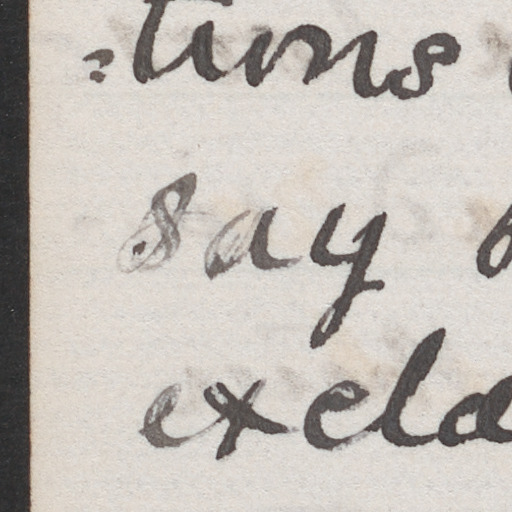 =tions
say
excla